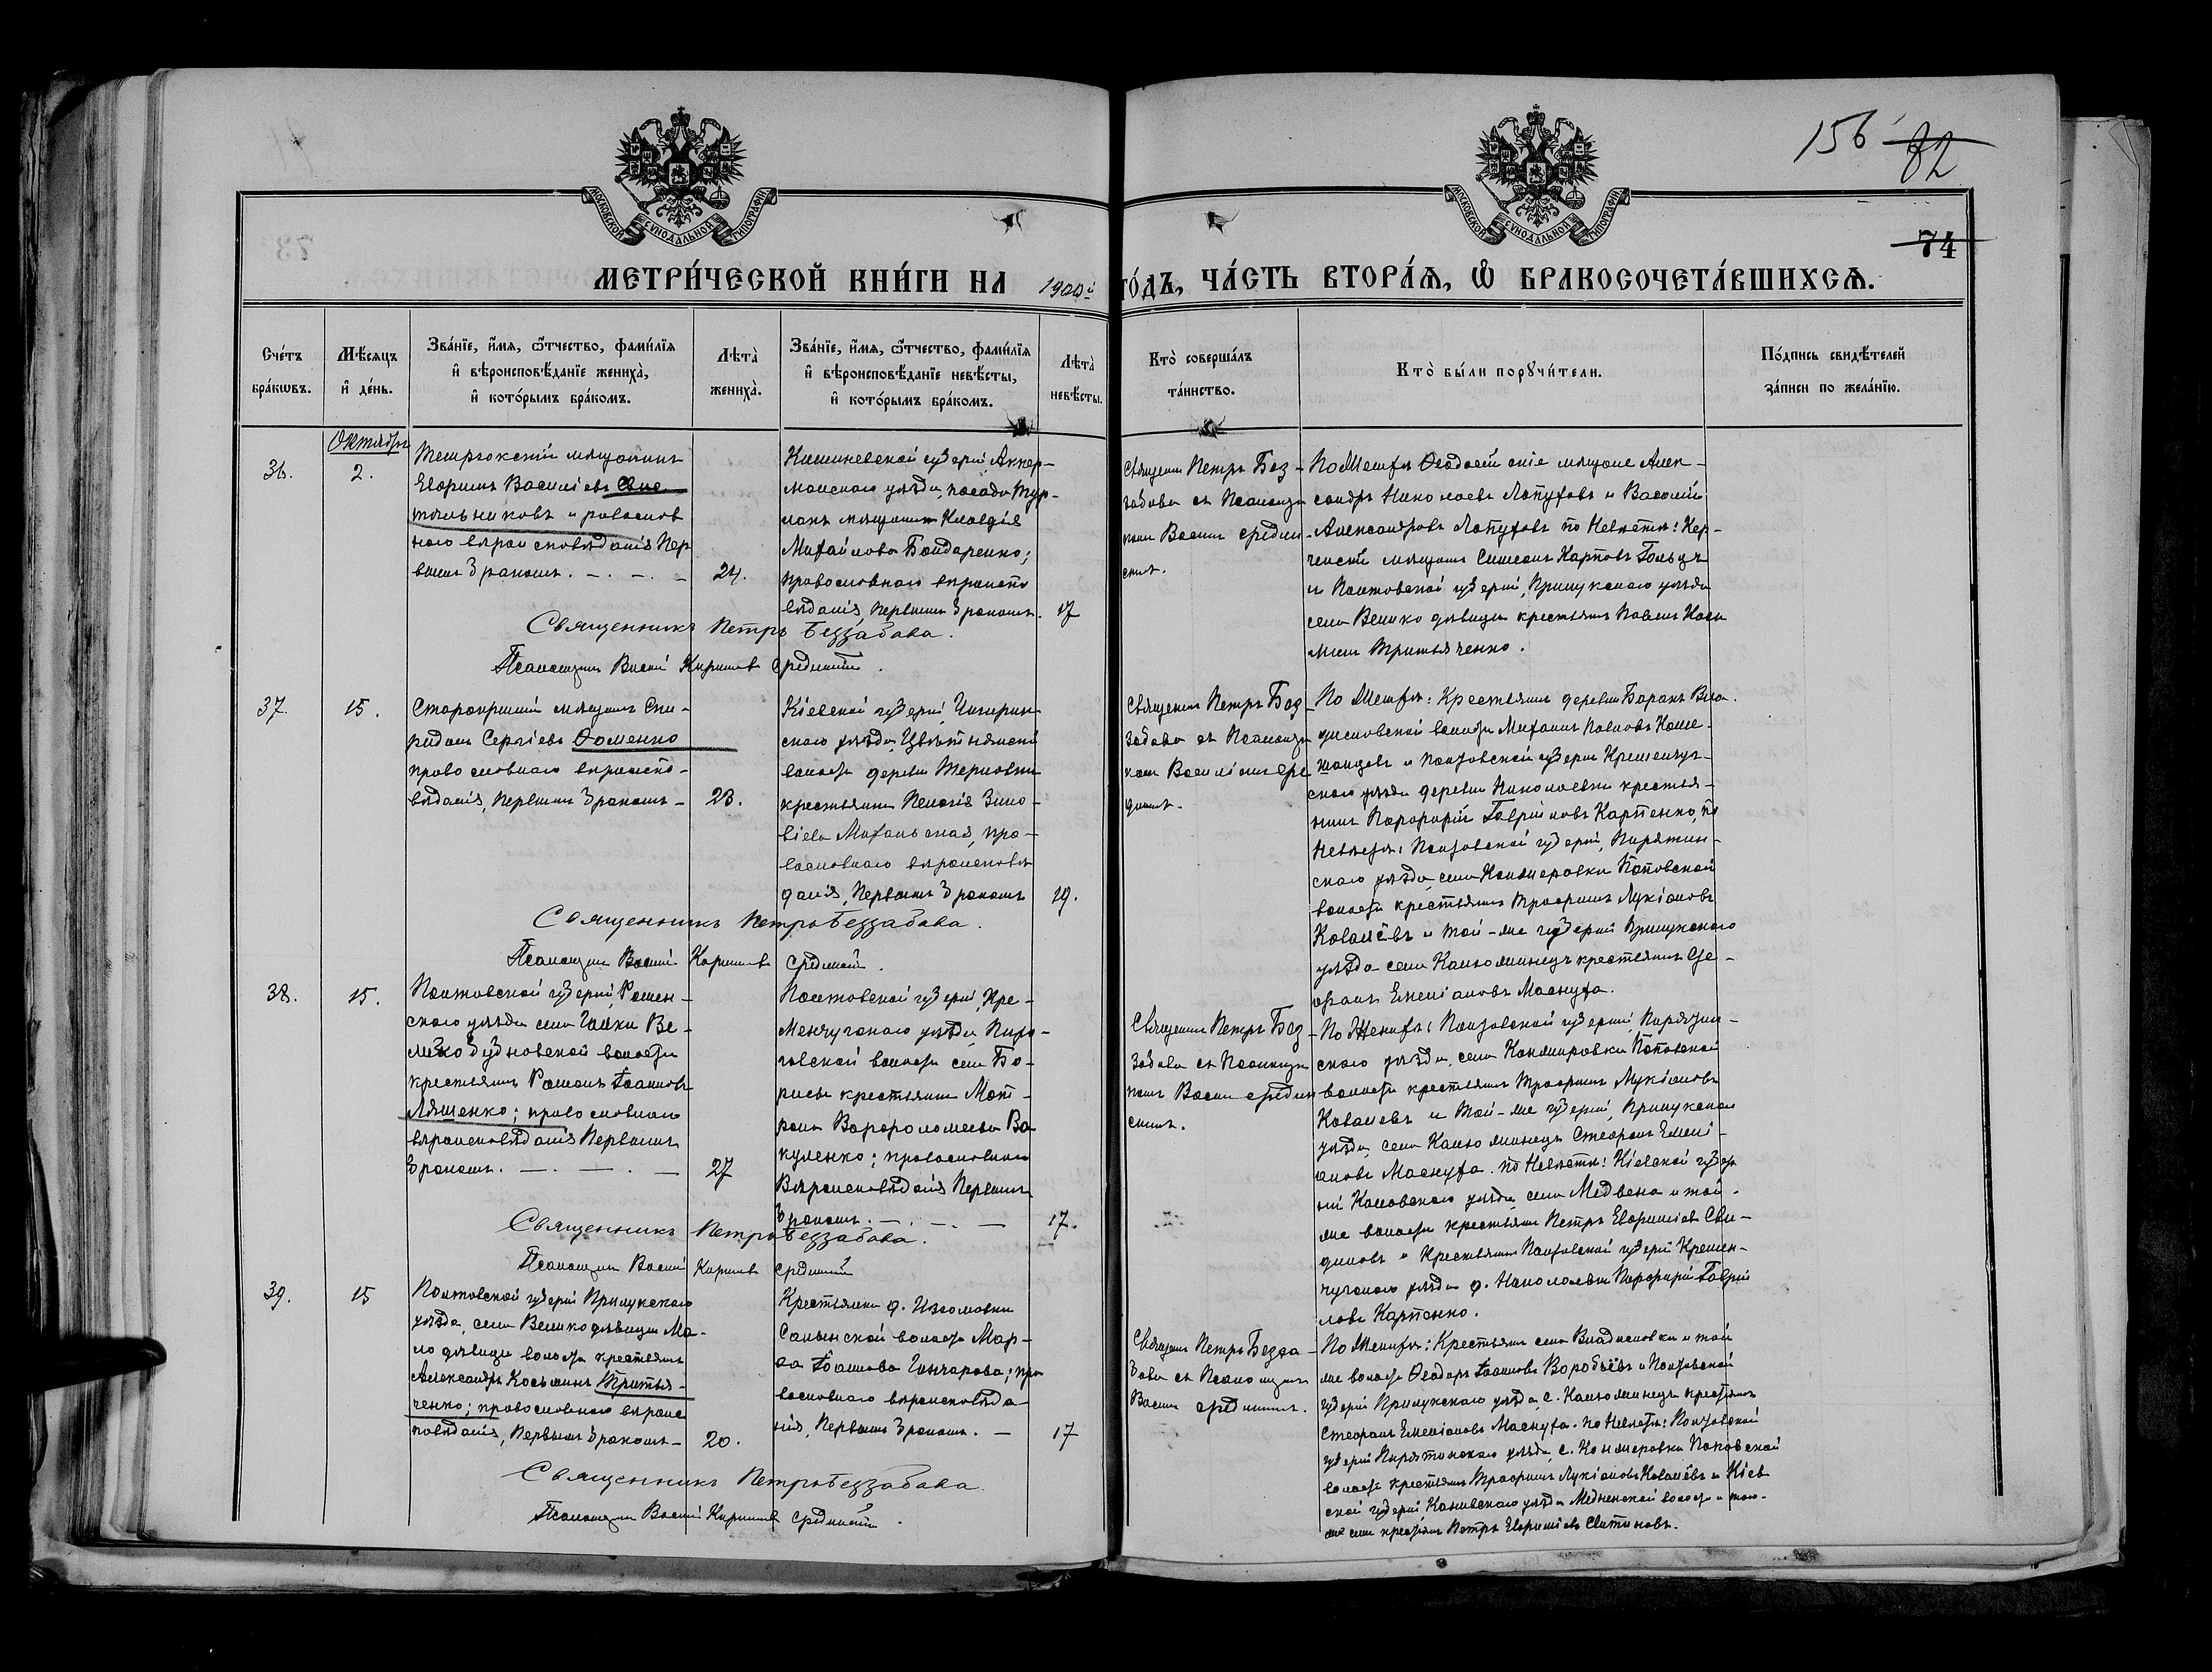 156 82
74
МОСКОВСКОЙ СѴНОДАЛЬНОЙ ТИПОГРАФІИ
МОСКОВСКОЙ СѴНОДАЛЬНОЙ ТИПОГРАФІИ
МЕТРИ́ЧЕСКОЙ КНИ́ГИ НА 1900й ГО́ДЪ, ЧА́СТЬ ВТОРА́Ѧ, Ѽ БРАКОСОЧЕТА́ВШИХСѦ.
Сче́тъ бра́кѡвъ.
Мѣ́сѧцъ и҆ де́нь.
Зва́нїе, и҆́мѧ, ѻ҆́тчество, фами́лїѧ
и҆ вѣроисповѣ́данїе жениха̀,
и҆ кото́рымъ бра́комъ.
Лѣта̀ жениха̀.
Зва́нїе, и҆́мѧ, ѻ҆́тчество, фами́лїѧ
и҆ вѣроисповѣ́данїе невѣ́сты,
и҆ кото́рымъ бра́комъ.
Лѣта̀ невѣ́сты.
Кто̀ соверша́лъ
та́инство.
Кто̀ бы́ли порꙋчи́тели.
По́дпись свидѣ́телей
за́писи по жела́нїю.
Октября
36.
2.
мѣщанинъ
Василіевъ Свѣ
тильниковъ православ
наго вѣроисповѣданія Пер
вымъ бракомъ.
24.
Кишиневской губерніи, Аккер-
манскаго уѣзда, посада Тур-
лакъ мѣщанка Клавдія
Михайлова Бондаренко;
православнаго вѣроиспо
вѣданія, первымъ бракомъ.
17
Священникъ Петръ Без-
забава съ Псаломщи
комъ Васил. Средин
скимъ.
По Женихѣ Ѳеодосійскіе мѣщане Алек-
сандръ Николаевъ Лопуховъ и Василій
Александровъ Лопуховъ по Невѣстѣ: Кер-
ченскій мѣщан. Симеонъ Карповъ Гольцъ
и Полтавской губерніи, Прилукскаго уѣзда
села Велико дѣвицы крестьян. Павелъ Косьмин
Тритьяченко.
Священникъ Петръ Беззабава.
Псаломщикъ Васил Кирилловъ Срединскій.
37.
15.
Старокрымскій мѣщан. Спи-
ридонъ Сергіевъ Ѳоменко
православнаго вѣроиспо-
вѣданія, Первымъ бракомъ-
23.
Кіевской губерніи, Чигирин-
скаго уѣзда,
волости деревни Терновки
крестьянка Пелагія Зино-
віева пра-
вославнаго вѣроисповѣ
данія, Первымъ бракомъ
19.
Священ. Петръ Без-
забава съ Псаломщи
комъ Василіемъ Сре
динск.
По Женихѣ: Крестьян. деревни Баракъ Вла-
диславской волости Михаилъ Павловъ
и Полтавской губерніи Кременчуг-
скаго уѣзда деревни Николаевки крестья-
нинъ Порфирій Гавріиловъ Карпенко, по
Невѣстѣ: Полтавской губерніи, Пирятин-
скаго уѣзда, села Поповской
волости крестьян. Трофимъ Лукіановъ
Ковалёвъ и той-же губерніи Прилукскаго
уѣзда села крестьян. Сте-
фанъ Емеліановъ Маснуха.
Священникъ Петръ Беззабава.
Псаломщикъ Васил Кирилловъ Срединскій.
38.
15.
Полтавской губерніи, Ромен-
скаго уѣзда села Галки Ве-
лико Бубновской волости
крестьян. Романъ Іоанновъ
Лященко; православнаго
вѣроисповѣданія Первымъ
бракомъ.
27
Полтавской губерніи, Кре-
менчугскаго уѣзда,
волости села Бо-
рисы крестьянка Мат-
рона Варфоломеева Ва-
куленко; православнаго
Вѣроисповѣданія Первымъ
бракомъ.
17.
Священ. Петръ Без-
забава съ Псаломщи
комъ Васил. Средин
скимъ.
По Женихѣ: Полтавской губерніи, Пирятин-
скаго уѣзда, села Поповской
волости крестьян. Трофимъ Лукіановъ
Ковалевъ и той-же губерніи, Прилукскаго
уѣзда, села Стефанъ Емелі-
ановъ Маснуха. по Невѣстѣ: Кіевской губер
ніи Каневскаго уѣзда, села Медвена и той-
же волости крестьян. Петръ Евфиміевъ Сви-
диновъ и Крестьян. Полтавской губерніи Кремен-
чугскаго уѣзда д. Николаевки Порфирій Гаврі
ловъ Карпенко.
Священникъ Петръ Беззабава.
Псаломщикъ Васил Кирилловъ Срединскій
39.
15
Полтавской губерніи Прилукскаго
уѣзда, села Великодѣвицы Ма-
ло дѣвицк. волости крестьян.
Александръ Косьминъ Тритья-
ченко; православнаго вѣроис
повѣданія, Первымъ бракомъ-
20.
Крестьянка д.
волости Мар-
ѳа Іоаннова Гончарова; пра
вославнаго вѣроисповѣда-
нія, Первымъ бракомъ. -
17
Священ. Петръ Безза-
бава съ Псаломщикомъ
Васил. Срединскимъ.
По Женихѣ: Крестьян. села Владиславки и той
же волости Ѳеодоръ Іоанновъ Воробьёвъ и Полтавской
губерніи Прилукскаго уѣзда, с. крестьян.
Стефанъ Емеліановъ Маснуха. по Невѣстѣ: Полтавской
губерніи Пирятинскаго уѣзда, с. Поповской
волости крестьян. Трофимъ Лукіановъ Ковалёвъ и Кіев
ской губерніи, Каневскаго уѣзда, волости и того-
же села крестьян. Петръ Евфиміевъ
Священникъ Петръ Беззабава.
Псаломщикъ Васил Кирилловъ Срединскій.